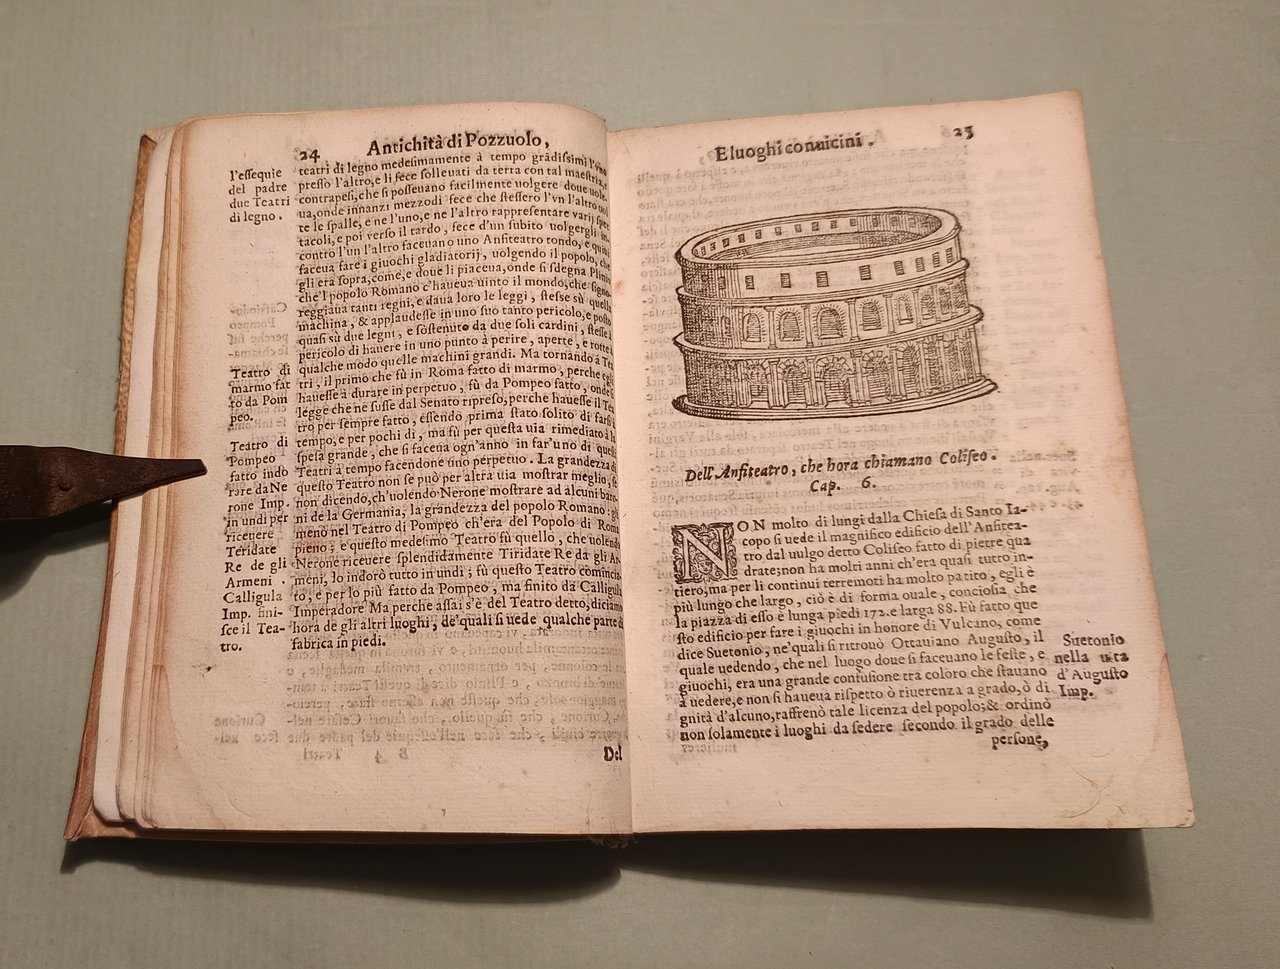 24
Antichità di Pozzuolo,
l'essequie
del padre
due Teatri
di legno.
teatri di legno medesimamente à tempo grādissimi l'vno
presso l'altro, e li fece solleuati da terra con tal maestria, e
contrapesi, che si posseuano facilmente uolgere doue uole
ua, onde innanzi mezzodi fece che stessero l'vn l'altro uol
te le spalle, e ne l'uno, e ne l'altro rappresentare varij spet
tacoli, e poi verso il tardo, fece d'un subito uolgergli in-
contro l'un l'altro faceuano uno Anfiteatro tondo, e quiui
faceua fare i giuochi gladiatorij, uolgendo il popolo, che
gli era sopra, come, e doue li piaceua, onde si sdegna Plinio
che'l popolo Romano c'haueua uinto il mondo, che signo-
reggiaua tanti regni, e daua loro le leggi, stesse sù quella
machina, & applaudesse in uno suo tanto pericolo, e posto
quasi sù due legni, e sostenuto da due soli cardini, stesse à
pericolo di hauere in uno punto à perire, aperte, e rotte à
qualche modo quelle machini grandi. Ma tornando á Tea
Teatro di
marmo fat
to da Pom
peo.
tri, il primo che fù in Roma fatto di marmo, perche egli
hauesse à durare in perpetuo, fù da Pompeo fatto, onde si
legge che ne fusse dal Senato ripreso, perche hauesse il Tea
tro per sempre fatto, essendo prima stato solito di farsi à
tempo, e per pochi di, ma fù per questa uia rimediato à la
spesa grande, che si faceua ogn'anno in far'uno di questi
Teatri à tempo facendone uno perpetuo. La grandezza di
questo Teatro non se può per altra uia mostrar meglio, se
non dicendo, ch'uolendo Nerone mostrare ad alcuni baro-
ni de la Germania, la grandezza del popolo Romano: gli
menò nel Teatro di Pompeo ch'era del Popolo di Roma
pieno; e questo medesimo Teatro sù quello, che uolendo
Nerone riceuere splendidamente Tiridate Re da gli Ar-
meni, lo indorò tutto in undi; fù questo Teatro comincia-
to, e per lo più fatto da Pompeo, ma finito da Calligula
Imperadore Ma perche assai s'è del Teatro detto, diciamo
hora de gli altri luoghi, de'quali si uede qualche parte di
fabrica in piedi.
Teatro di
Pompeo
fatto indo
rare da Ne
rone Imp.
in undi per
riceuere
Teridate
Re de gli
Armeni.
Calligula
Imp. fini-
sce il Tea-
tro.
Del
E luoghi conuicini.
25
Dell'Anfiteatro, che hora chiamano Coliseo.
Cap. 6.
NON molto di lungi dalla Chiesa di Santo Ia-
copo si uede il magnifico edificio dell'Anfitea-
tro dal uulgo detto Coliseo fatto di pietre qua
drate; non ha molti anni ch'era quasi tutto in-
tiero; ma per li continui terremoti ha molto patito, egli è
più lungo che largo, ciò è di forma ouale, conciosia che
la piazza di esso è lunga piedi 172. e larga 88. Fù fatto que
sto edificio per fare i giuochi in honore di Vulcano, come
dice Suetonio, ne'quali si ritrouò Ottauiano Augusto, il
quale uedendo, che nel luogo doue si faceuano le feste, e
giuochi, era una grande confusione tra coloro che stauano
à uedere, e non si haueua rispetto ò riuerenza a grado, ò di
gnità d'alcuno, raffrenò tale licenza del popolo; & ordinò
non solamente i luoghi da sedere secondo il grado delle
persone,
Suetonio
nella uita
d'Augusto
Imp.